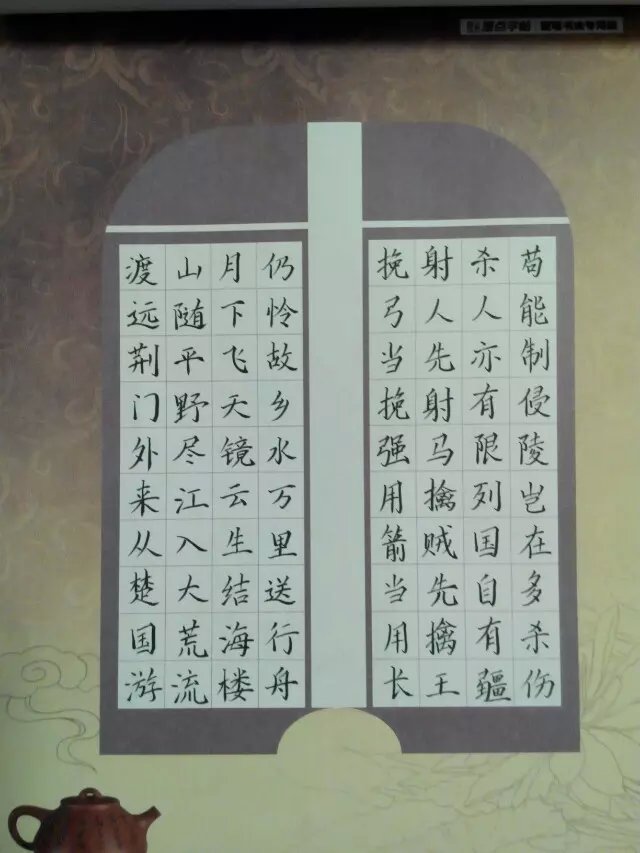 渡远荆门外来从楚国游
山随平野尽江入大荒流
月下飞天镜云生结海楼
仍怜故乡水万里送行舟
挽弓当挽强用箭当用长
射人先射马擒贼先擒王
杀人亦有限列国自有疆
苟能制侵陵岂在多杀伤